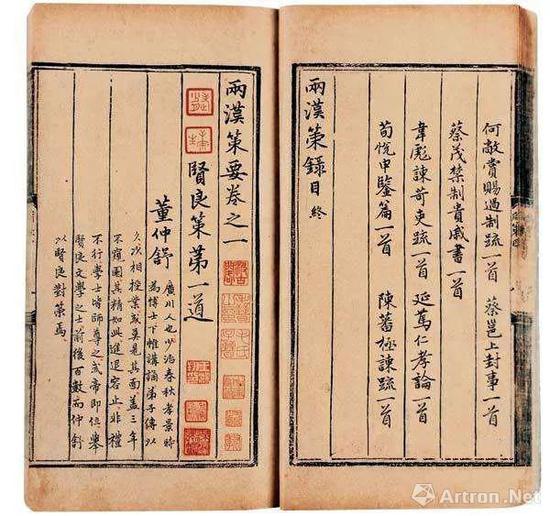 何敞賞賜過制疏一首 蔡邕上封事一首
蔡茂禁制貴戚書一首
韋彪諫苛吏疏一首 延篤仁孝論一首
荀悅申鑒篇一首 陳蕃極諫疏一首
兩漢策錄目 終
兩漢策要卷之一
賢良策第一道
董仲舒
廣川人也少治春秋孝景時
為博士下帷講誦弟子傳以
久次相授業或莫見其面蓋三年
不窺園其精如此進退容止非禮
不行學士皆師尊之武帝即位舉
賢良文學之士前後百數而仲舒
以賢良對策焉
Artron.Net